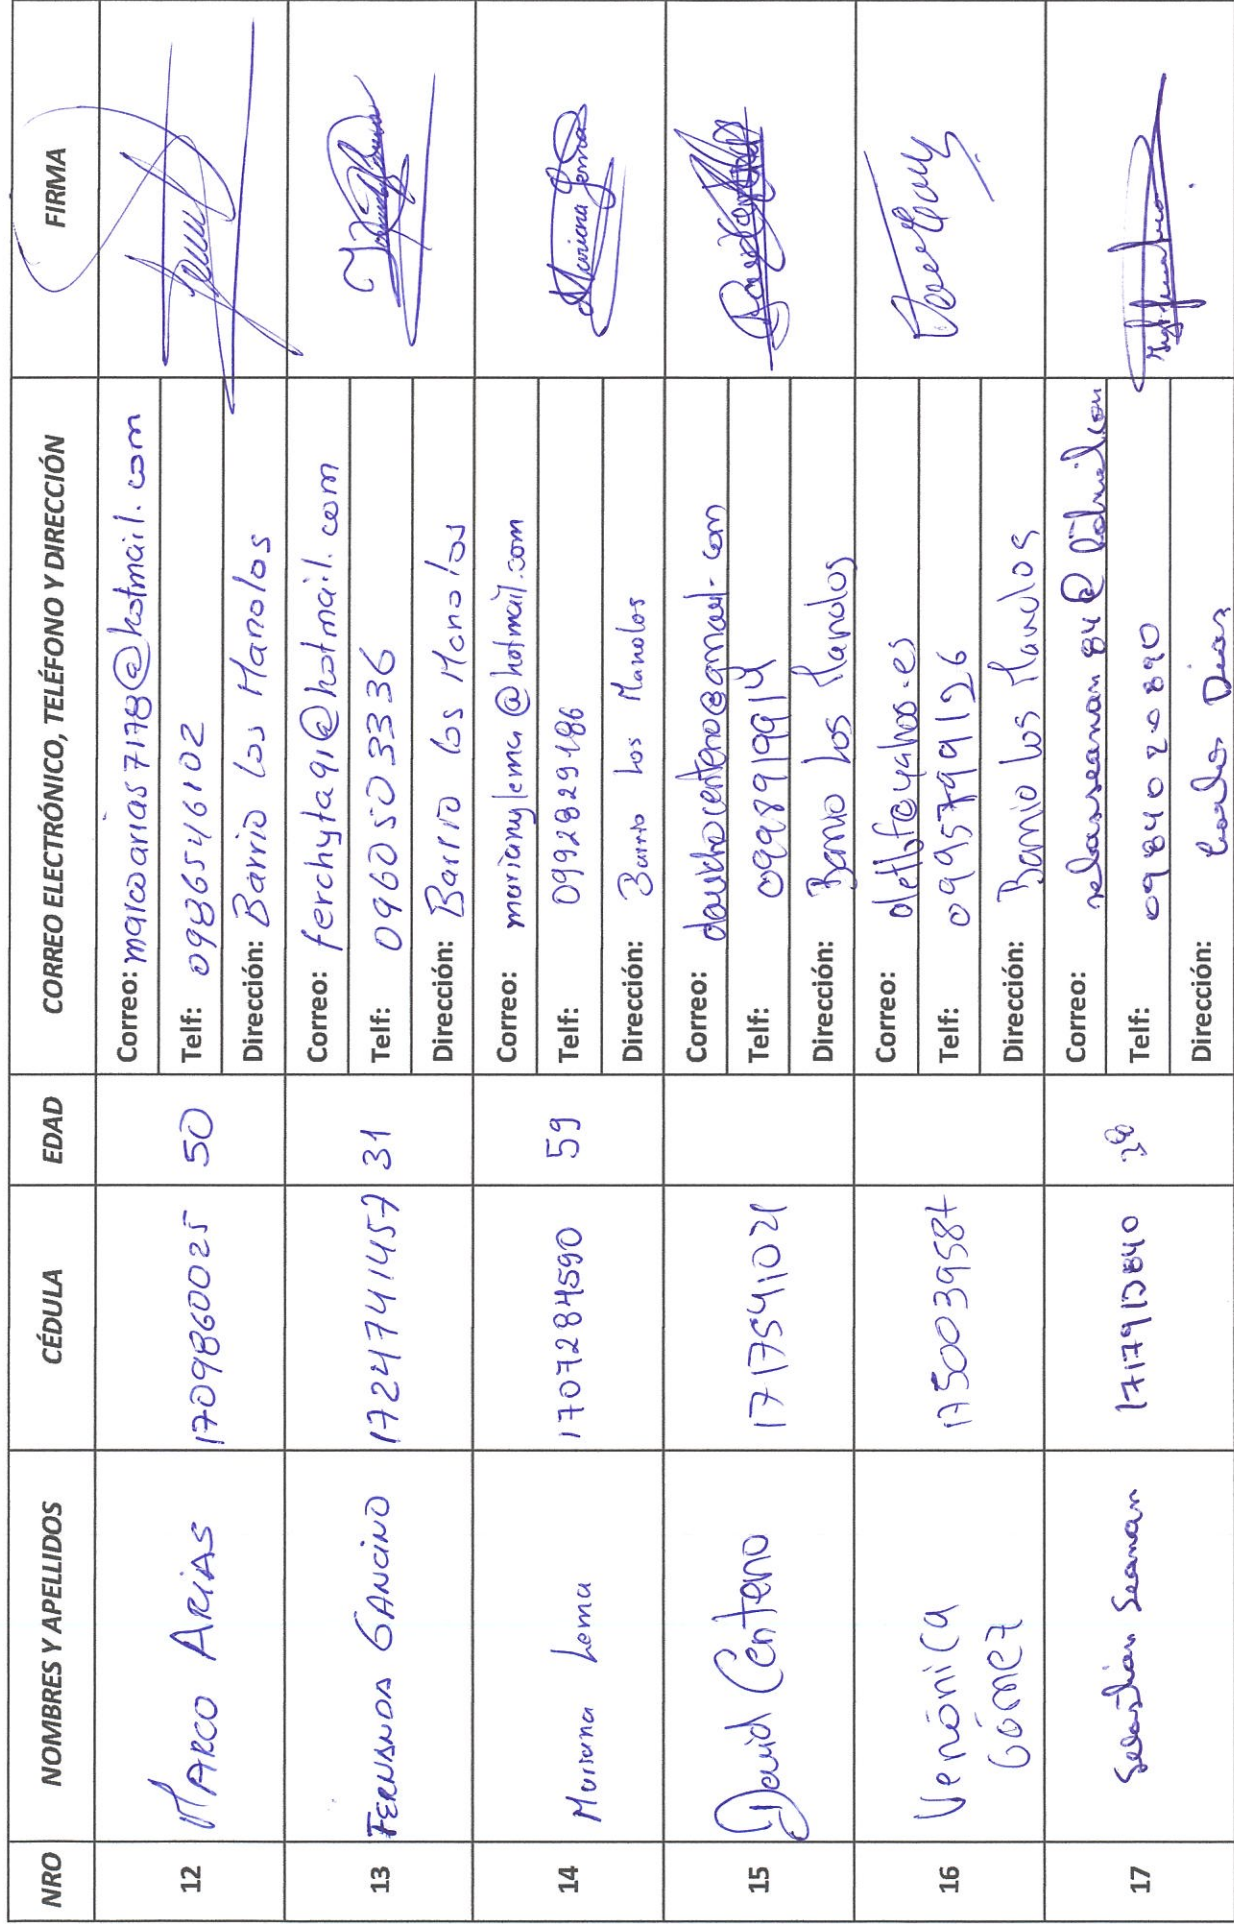 NRO NOMBRES Y APELLIDOS CÉDULA EDAD CORREO ELECTRÓNICO, TELÉFONO Y DIRECCIÓN FIRMA
12 MARCO ARIAS 1709860025 50
Correo: marcoarias7178@hotmail.com
Telf: 0986546102
Dirección: Barrio Los Manolos
13 FERNANDA GANCINO 1724741457 31
Correo: ferchyta91@hotmail.com
Telf: 0960503336
Dirección: Barrio los Manolos
14 Mariana Lema 1707284590 59
Correo: marianylema@hotmail.com
Telf: 0992829486
Dirección: Barrio Los Manolos
Mariana Lema
15 David Centeno 1717541021
Correo:
Telf: 0998919914
Dirección: Barrio Los Manolos
16 Verónica Gómez 1750039587
Correo:
Telf: 0995799126
Dirección: Barrio Los Manolos
17 Sebastian Seaman 1717913840
Correo:
Telf: 0984020890
Dirección: